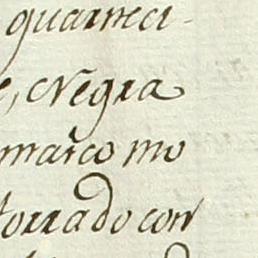 guarneci-
e, cNegra
marco mo
torrado con